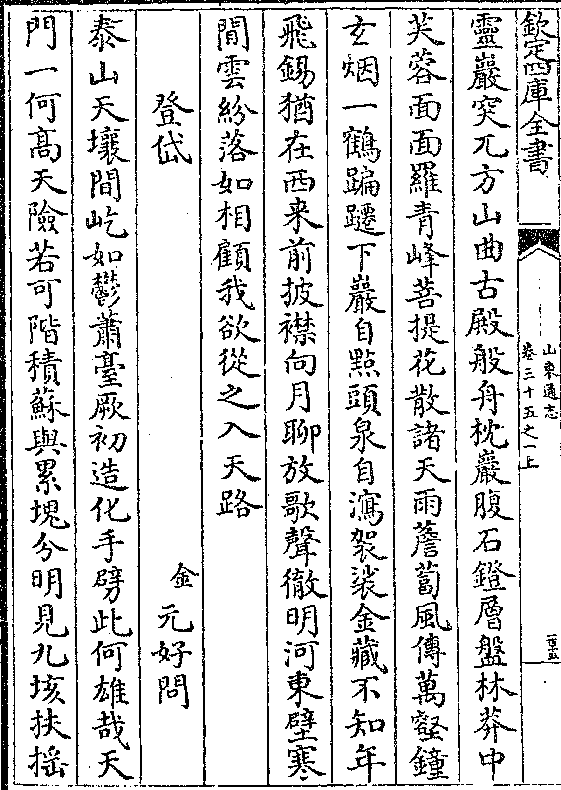 欽定四庫全書
山東通志
卷三十五之一上
靈巖突兀方山曲古殿般舟枕巖腹石鐙層盤林莽中
芙蓉面面羅青峰菩提花散諸天雨薝蔔風傳萬壑鐘
玄烟一鶴蹁躚下巖自點頭泉自瀉袈裟金藏不知年
飛錫猶在西来前披襟向月聊放歌聲徹明河東壁寒
閒雲紛落如相顧我欲從之入天路
登岱
金 元好問
泰山天壤間屹如鬱蕭臺厥初造化手劈此何雄哉天
門一何髙天險若可階積蘇與累塊分明見九垓扶揺